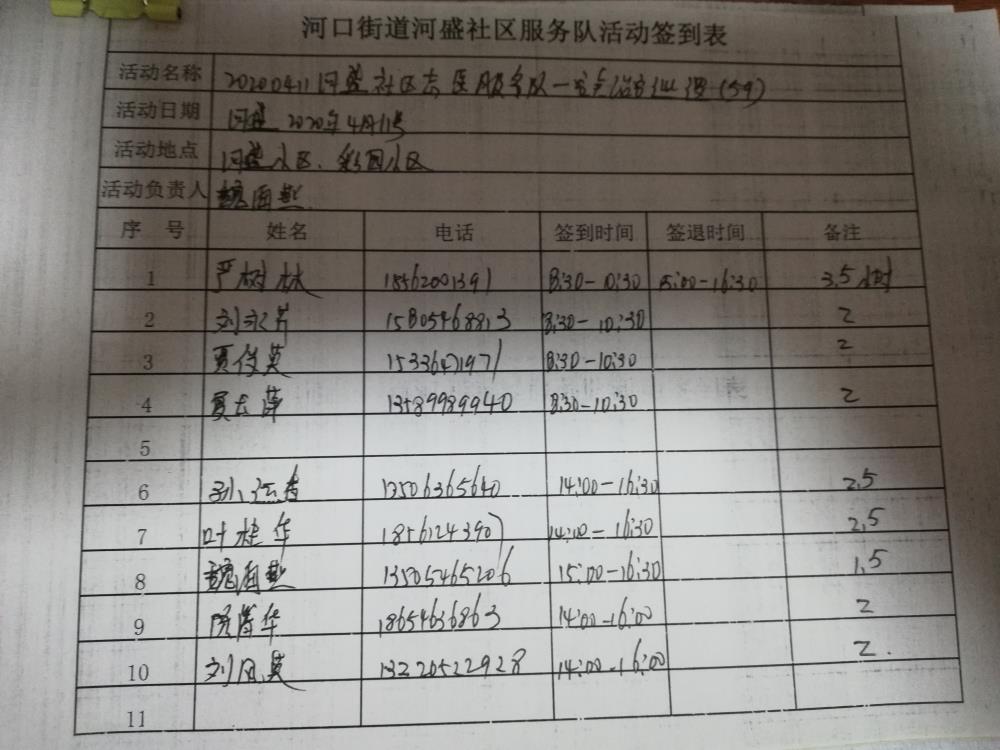 河口街道河盛社区服务队活动签到表
活动名称 20200411河盛社区志 服务队一 点 (59)
活动日期 河盛 2020年4月11号
活动地点 河盛小区、彩园小区
活动负责人 魏
序 号 姓名 电话 签到时间 签退时间 备注
1 严树林 18562001391 8:30-10:30 15:00-16:30 3.5小时
2 刘永芳 15805468813 8:30-10:30 2
3 贾俊英 15336471971 8:30-10:30 2
4 13589989940 8:30-10:30 2
5
6 孙 13506365640 14:00-16:30 2.5
7 叶桂华 18561243907 14:00-16:30 2.5
8 魏 13505465206 15:00-16:30 1.5
9 华 18654636863 14:00-16:00 2
10 刘凤英 13220522928 14:00-16:00 2.
11